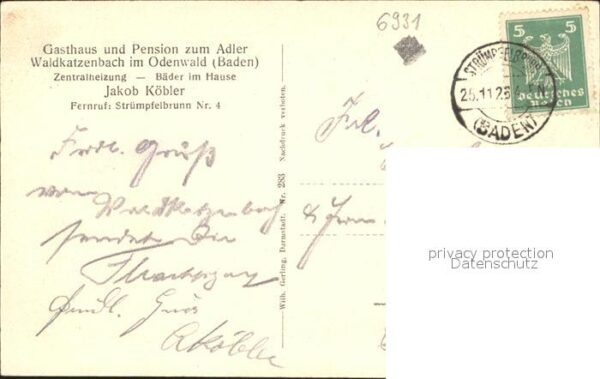 6931
Gasthaus und Pension zum Adler
Waldkatzenbach im Odenwald (Baden)
Zentralheizung — Bäder im Hause
Jakob Köbler
Fernruf: Strümpfelbrunn Nr. 4
Frdl. Gruß
vom
Waldkatzenbach
sendet Die
Gruß
Köbler
Wilh. Gerling, Darmstadt. Nr. 283 Nachdruck verboten.
Frl.
& Frau
5 5
Deutsches
Reich
STRÜMPFELBRUNN
25.11.26
(BADEN)
privacy protection
Datenschutz